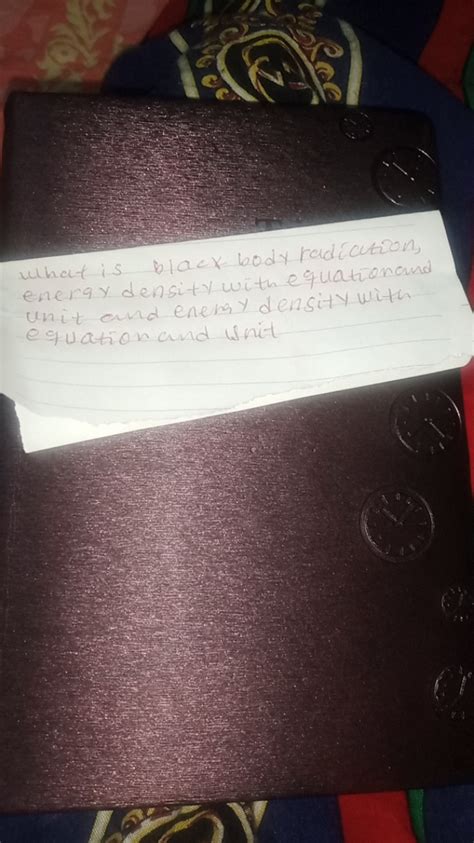 what is black body radiation,
energy density with equation and
unit and energy density with
equation and unit